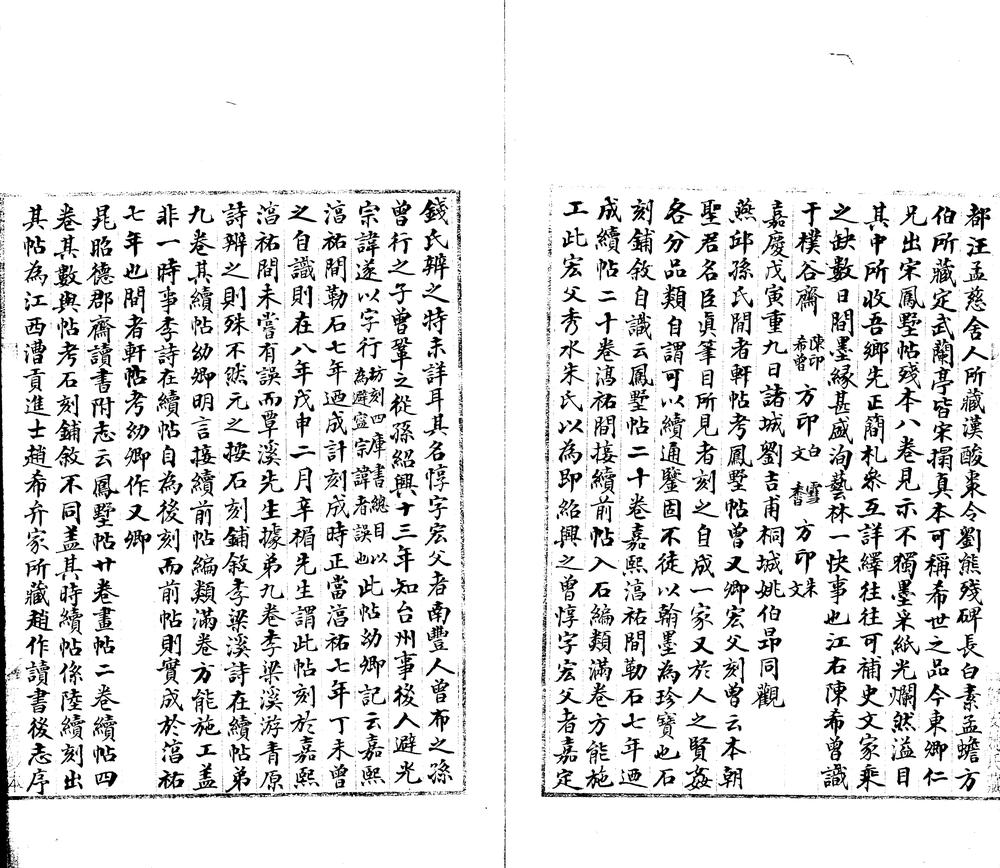 都汪孟慈舍人所藏漢酸棗令劉熊殘碑長白素孟蟾方
伯所藏定武蘭亭皆宋搨真本可稱希世之品今東卿仁
兄出宋鳳墅帖殘本八卷見示不獨墨采紙光爛然溢目
其中所收吾鄉先正簡札參互詳繹往往可補史文家乘
之缺數日間墨緣甚盛洵藝林一快事也江右陳希曾識
于樸谷齋 陳印希曾 方印 白文 雪香 方印 朱文
嘉慶戊寅重九日諸城劉吉甫桐城姚伯昂同觀
燕邱孫氏閒者軒帖考鳳墅帖曾又卿宏父刻曾云本朝
聖君名臣真筆目所見者刻之自成一家又於人之賢姦
各分品類自謂可以續通鑒固不徒以翰墨為珍寶也石
刻鋪敘自識云鳳墅帖二十卷嘉熙淳祐間勒石七年迺
成續帖二十卷淳祐間接續前帖入石編類滿卷方能施
工此宏父秀水朱氏以為即紹興之曾惇字宏父者嘉定
錢氏辨之特未詳耳其名惇字宏父者南豐人曾布之孫
曾行之子曾鞏之從孫紹興十三年知台州事後人避光
宗諱遂以字行坊刻四庫書總目以為避寧宗諱者誤也此帖幼卿記云嘉熙
淳祐間勒石七年迺成計刻成時正當淳祐七年丁未曾
之自識則在八年戊申二月辛楣先生謂此帖刻於嘉熙
淳祐間未嘗有誤而覃溪先生據弟九卷李梁溪游青原
詩辨之則殊不然元之按石刻鋪敘李梁溪詩在續帖弟
九卷其續帖幼卿明言接續前帖編類滿卷方能施工蓋
非一時事李詩在續帖自為後刻而前帖則實成於淳祐
七年也閒者軒帖考幼卿作又卿
晁昭德郡齋讀書附志云鳳墅帖廿卷畫帖二卷續帖四
卷其數與帖考石刻鋪敘不同蓋其時續帖係陸續刻出
其帖為江西漕貢進士趙希弁家所藏趙作讀書後志序